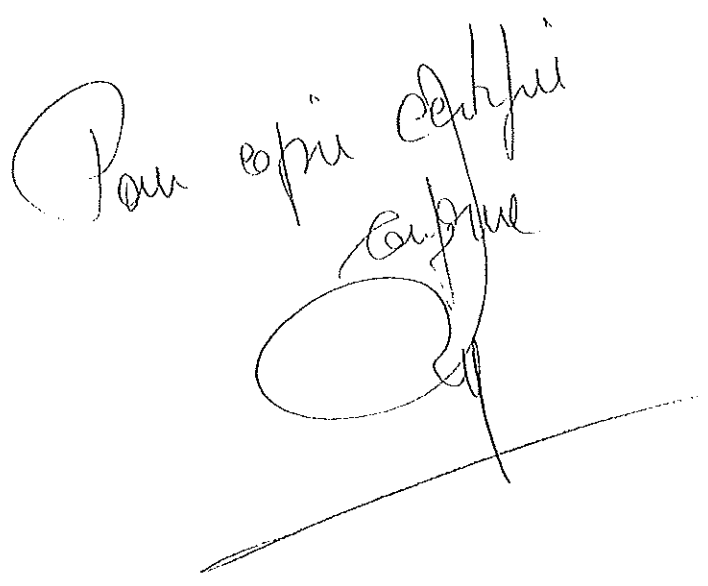 Pour copie certifiée
conforme